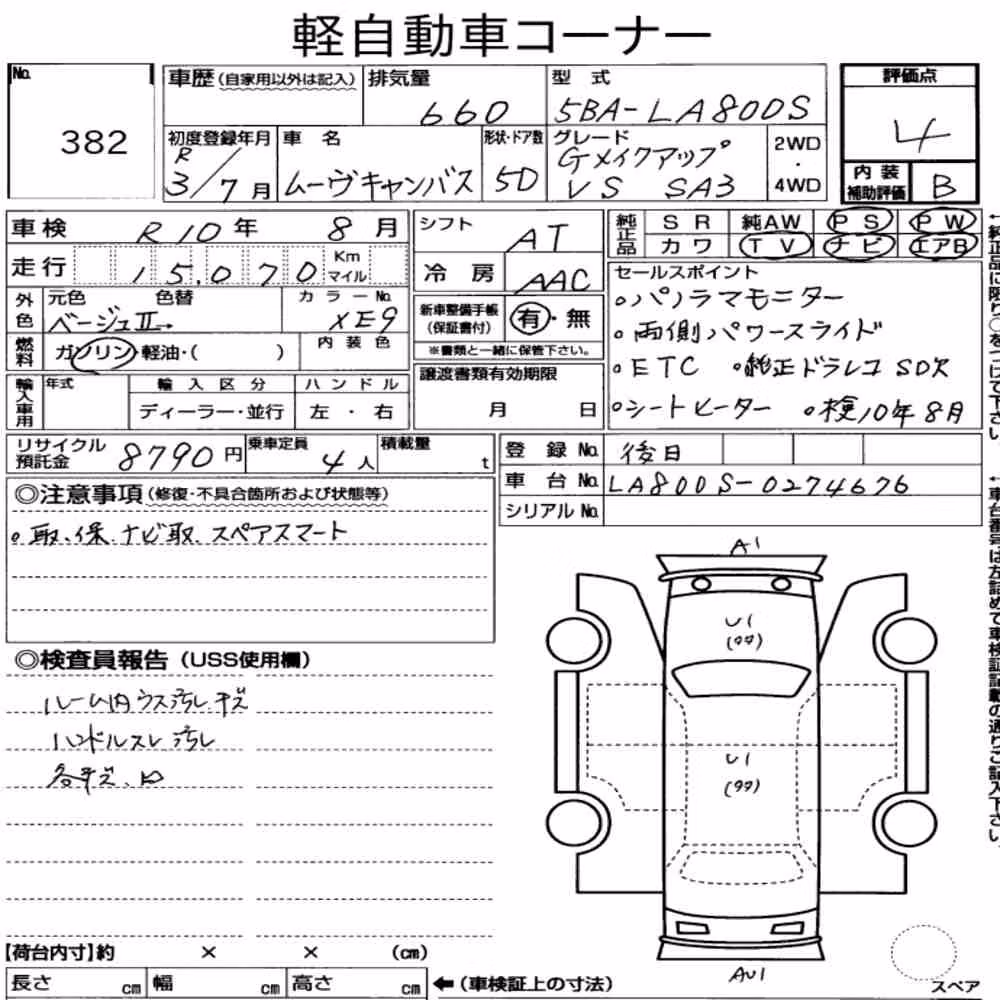 軽自動車コーナー
No. 382
車歴 (自家用以外は記入)
排気量 660
型式 5BA-LA800S
評価点 4
初度登録年月 R3/7月
車名 ムーヴキャンバス
形状・ドア数 5D
グレード Gメイクアップ VS SA3
2WD・4WD
内装補助評価 B
車検 R10年 8月
シフト AT
純正品 SR 純AW PS PW
カワ TV ナビ エアB
走行 15,070 Km マイル
冷房 AAC
セールスポイント
。パノラマモニター
。両側パワースライド
。ETC 。純正ドラレコ SD欠
。シートヒーター 。検10年8月
外色 元色 色替 カラーNo.
ベージュⅡ→ XE9
新車整備手帳(保証書付) 有・無
※書類と一緒に保管下さい。
燃料 ガソリン・軽油・( )
内装色
譲渡書類有効期限
月 日
輸入車用 年式 輸入区分 ハンドル
ディーラー・並行 左・右
リサイクル預託金 8790円
乗車定員 4人
積載量 t
登録No. 後日
車台No. LA800S-0274676
シリアルNo.
◎注意事項(修復・不具合箇所および状態等)
。取、保、ナビ取、スペアスマート
◎検査員報告 (USS使用欄)
ルーム内ウス汚レ.キズ
ハンドルスレ汚レ
各キズ、凹
A1
U1
U1
AU1
【荷台内寸】約 × × (cm)
長さ cm 幅 cm 高さ cm ←(車検証上の寸法)
スペア
←純正品に限り○をつけて下さい。
←車台番号は左詰めで車検証記載の通りご記入下さい。